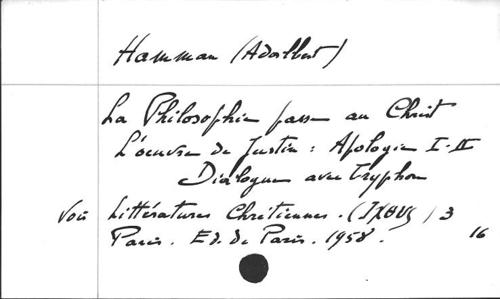 Hamman (Adalbert)
La Philosophie passe au Christ
L'oeuvre de Justin : Apologie I-II
Dialogue avec Tryphon
Voir Littératures Chrétiennes. (IXΘUS) 3
Paris. Ed. de Paris. 1958.
16